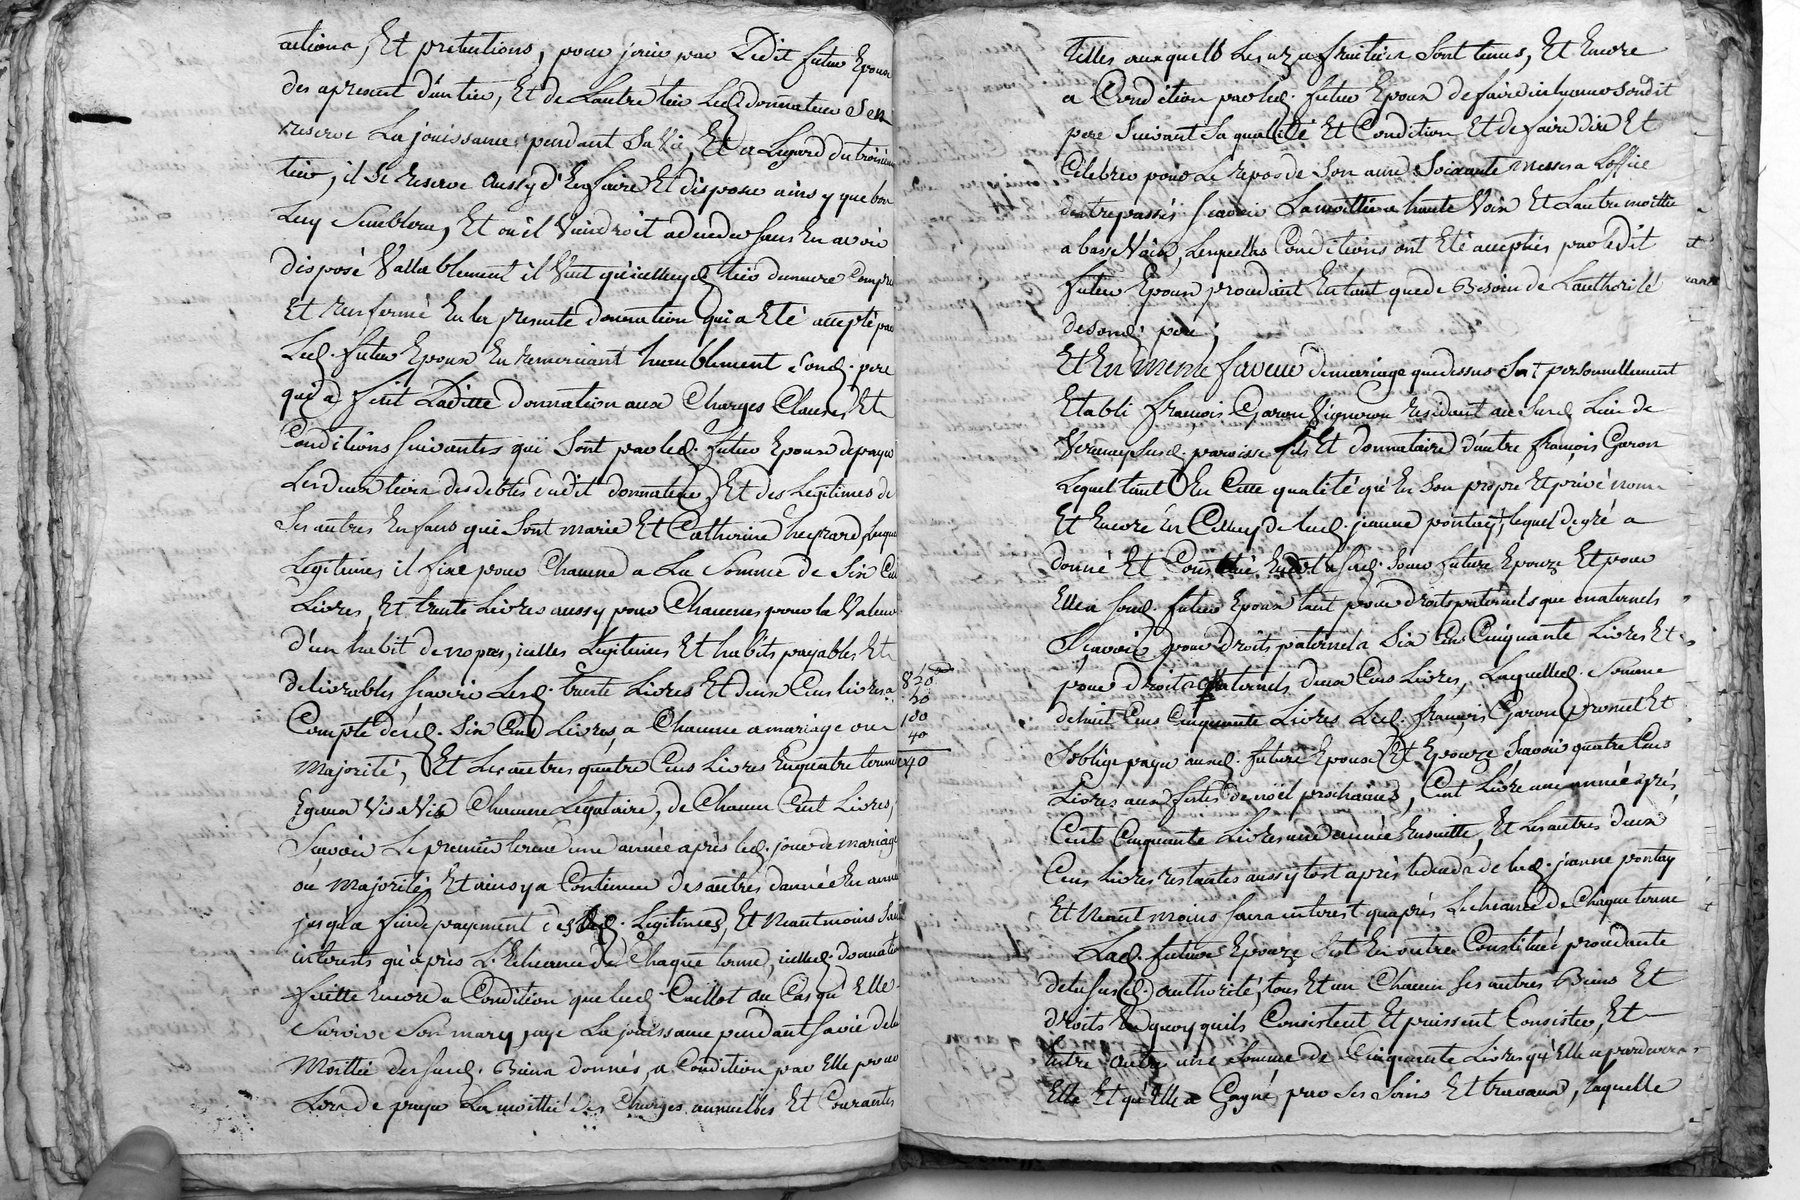 actions, Et pretentions, pour jouir par Ledit futur Epoux
des apresent d'un tier, Et de Lautre tier Led. donnateur s'en
reserve La jouissance pendant sa vie, Et a Legard du troisieme
tier, il se reserve aussy d'En faire Et disposer ainsy que bon
Luy Semblera, Et ou il Viendroit a deceder sans En avoir
disposé Vallablement il Veut qu'icelluy tier demeure Compris
Et renfermé En la presente donnation qui a Eté accepté par
Led. futur Epoux En remerciant humblement sond. pere
qui a fait Laditte donnation aux Charges Clauses Et
Conditions suivantes qui sont par led. futur Epoux de payer
Les deux tiers des debtes dudit donnateur, Et des Legitimes de
Ses autres Enfans qui sont marie Et Catherine
Legitimes il fixe pour Chacune a La Somme de Six Cens
Livres, Et trente Livres aussy pour Chacune pour la Valeur
d'un habit de nopces, icelles Legitimes Et habits payables Et
delivrables sçavoir Lesd. trente Livres Et deux Cens livres a
Compte desd. Six Cent Livres, a Chacune a mariage ou
Majorité, Et Les autres quatre Cens Livres En quatre termes
Egaux Vis a Vis Chacune Legataire, de Chacun Cent Livres,
Sçavoir Le premier terme une année après led. jour de mariage
ou Majorité, Et ainsy a Continuer des autres d'année En année
jusqu'a fin de payement desd. Legitimes, Et neantmoins sans
interests qu'après L'Echeance de Chaque terme, icelle d. donnation
faitte Encore a Condition que lad. Caillot au Cas qu'Elle
Survive Son mary, aye La jouissance pendant sa vie de la
Moitié desusd. Biens donnés, a Condition par Elle pour
Lors de payer La moitié des Charges annuelles Et Courantes
820
50
100
40
40
telles auxquelles Les uzufruitiers sont tenus, Et Encore
a Condition par led. futur Epoux de faire inhumer sondit
pere suivant sa qualité Et Condition Et de faire dire Et
Celebrer pour Le repos de Son ame Soixante Messes a Loffice
des trepassés sçavoir La moitié a haute Voix Et Lautre moittié
a basse Voix, Lesquelles Conditions ont Eté acceptées par Ledit
futur Epoux procedant En tant que de Besoin de Lauthorité
de sond. pere;
Et En meme faveur de mariage que dessus s'est personnellement
Etabli françois Garon Vigneron residant au susd. Lieu de
Verenay susd. paroisse fils Et donnataire d'autre françois Garon
Lequel tant En Cette qualité qu'En son propre Et privé nom
Et Encore En Celluy de lad. jeanne pontay, lequel de gré a
donné Et Constitué En dot a sad. Soeur future Epouze Et pour
Elle a sond. futur Epoux tant pour droits paternels que maternels
Sçavoir pour droits paternels Six Cens Cinquante Livres Et
pour droits maternels deux Cens Livres, Laquelle d. Somme
de huit Cens Cinquante Livres Led. françois Garon promet Et
s'oblige payer ausd. futurs Epoux Et Epouze sçavoir quatre Cens
Livres aux fêtes de noël prochaines, Cent Livre une année après,
Cent Cinquante Livres une année Ensuitte, Et Les autres deux
Cens livres restantes aussytost après le deces de lad. jeanne pontay
Et Neantmoins sans interest qu'après L'echeance de Chaque terme
Lad. future Epouze s'est En outre Constituée procedante
de la susd. authorité, tous Et un Chacun ses autres Biens Et
droits En quoy quils Consistent Et puissent Consister, Et
Entre autre une Somme de Cinquante Livres qu'Elle a pardevers
Elle Et qu'Elle a Gagné par ses soins Et travaux, laquelle